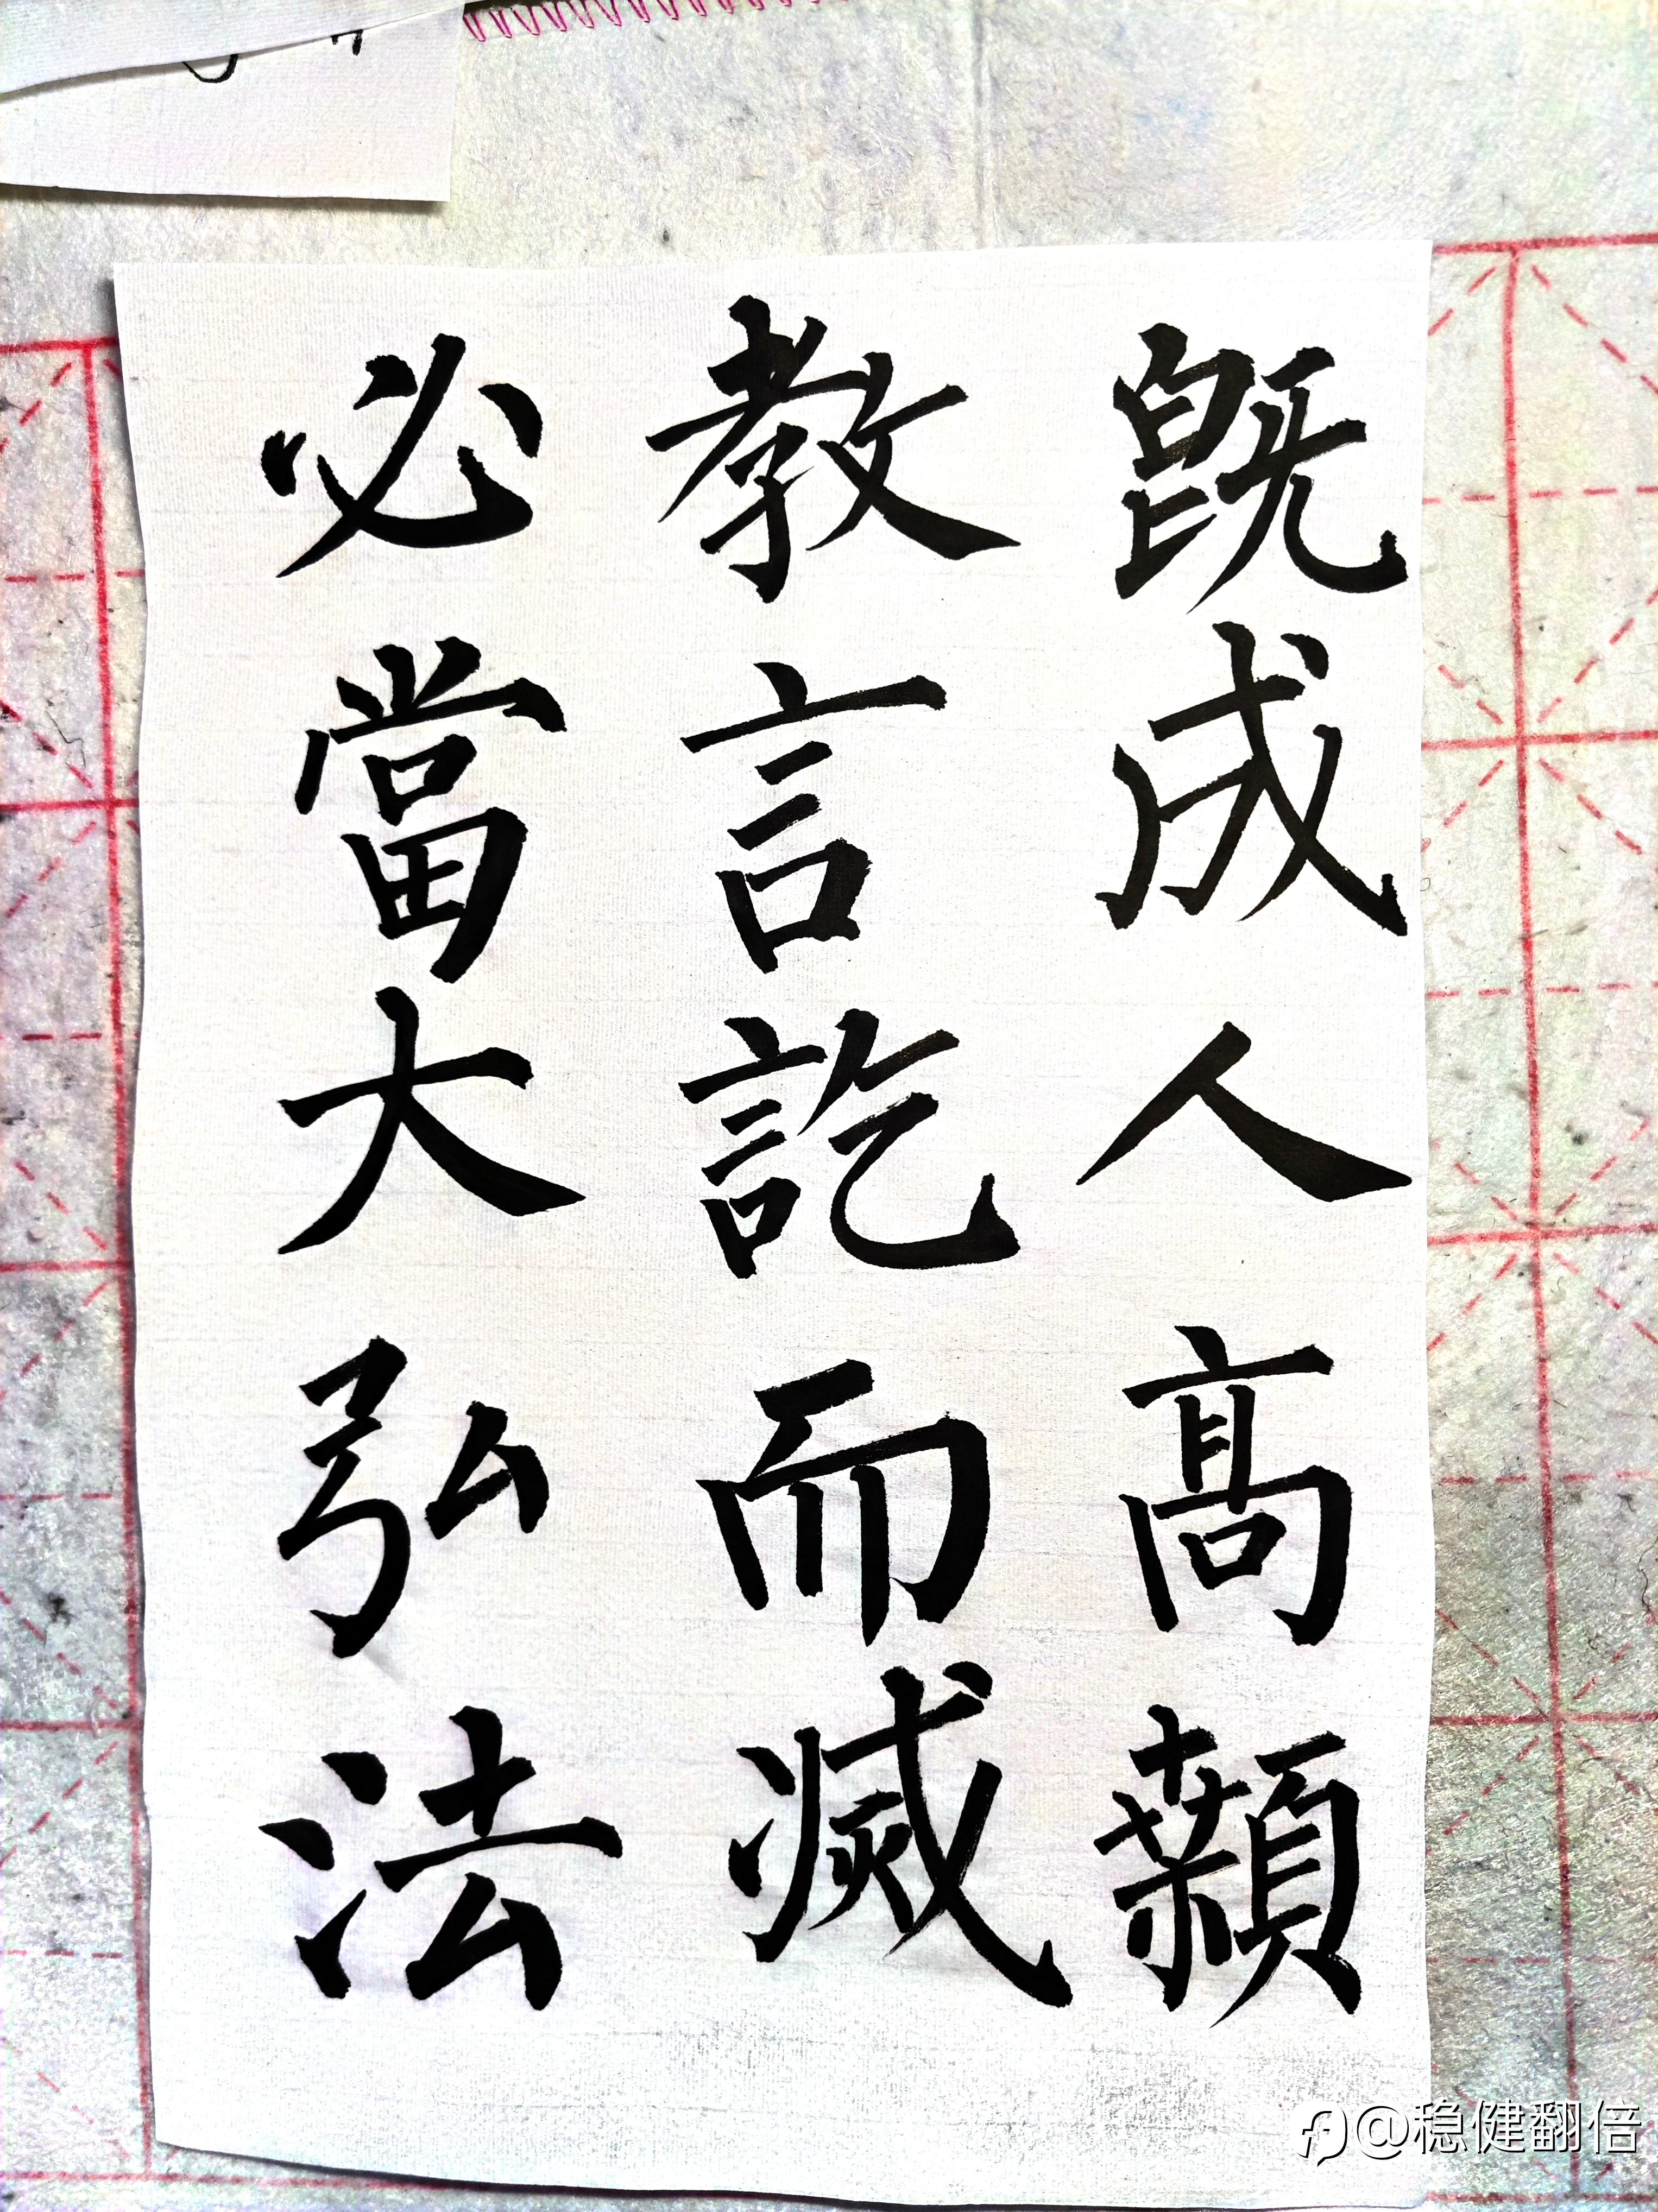 必當大弘法
教言訖而滅
既成人髙顙
@稳健翻倍